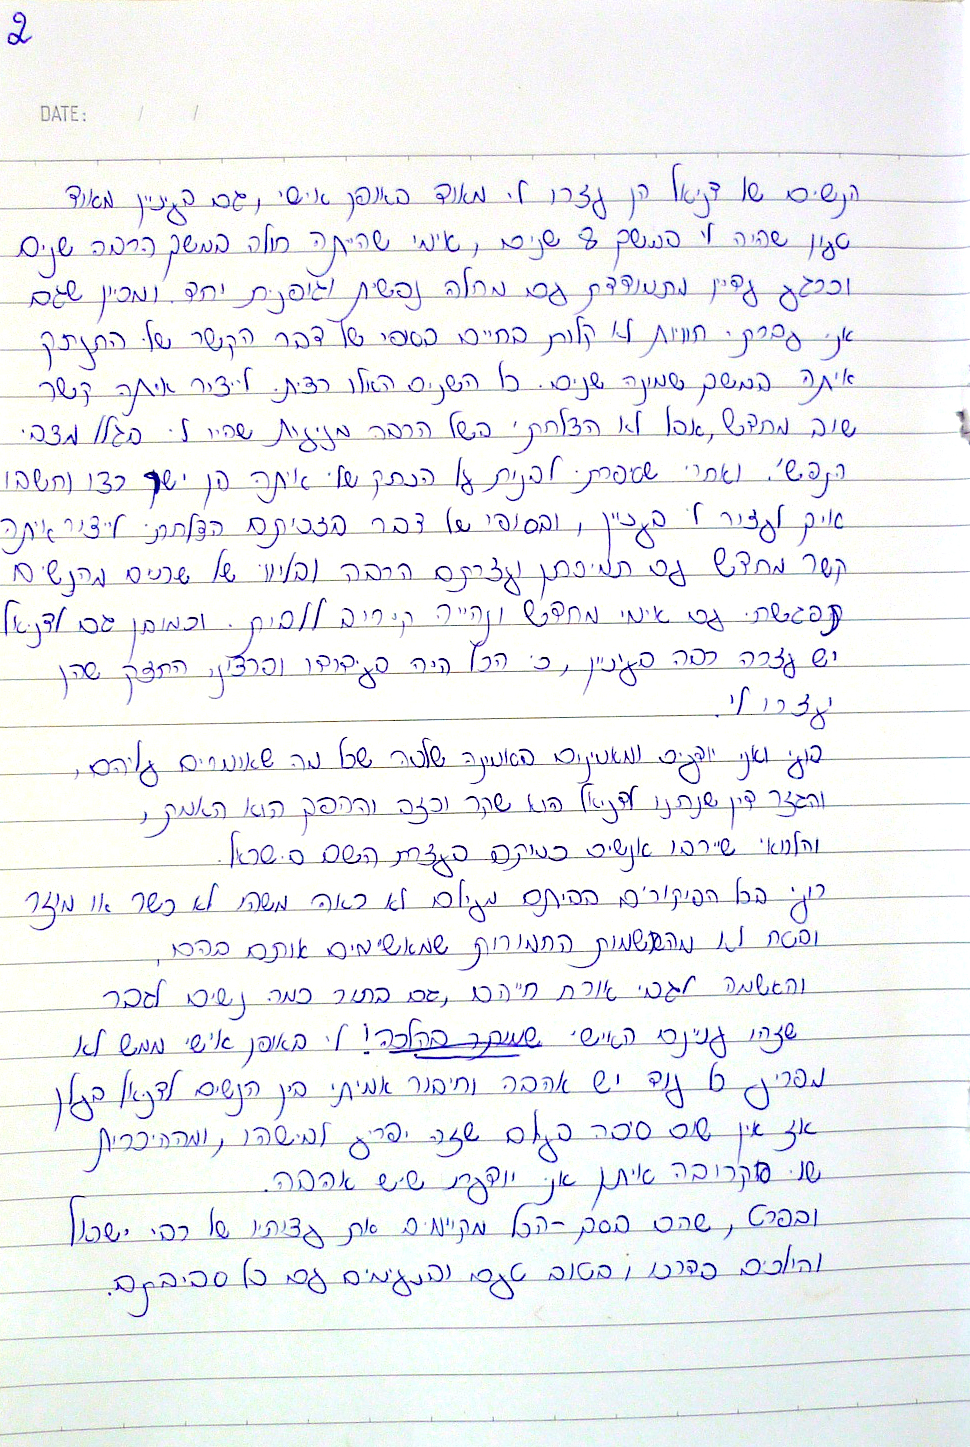 2
DATE: / /
הנשים של דניאל הן עזרו לי מאוד באופן אישי, גם בעיניין מאוד
טעון שהיה לי במשך 8 שנים, אימי שהייתה חולה במשך הרבה שנים
וכרגע עדיין מתמודדת עם מחלה נפשית וגופנית יחד. ומכיון שגם
אני עברתי חוויות לא קלות בחיים בסופו של דבר הקשר שלי התנתק
איתה במשך שמונה שנים. כל השנים האלו רציתי לייצור איתה קשר
שוב מחדש, אבל לא הצלחתי בשל הרבה מניעות שהיו לי בגלל מצבי
הנפשי. ואחרי שסיפרתי לבנות על הנתק שלי איתה הן ישר רצו וחשבו
איך לעזור לי בעניין, ובסופו של דבר בזכותם הצלחתי לייצור איתה
קשר מחדש עם תמיכתן ועזרתם הרבה ובליווי של שתים מהנשים
נפגשתי עם אימי מחדש ונהייה קירוב ללבית. וכמובן גם לדניאל
יש עזרה רבה בעיניין, כי הכל היה בעידודו וברצונו החזק שהן
יעזרו לי.
רוני ואני יודעים ומאמינים באמונה שלמה שכל מה שאומרים עליהם,
והגזר דין שנתנו לדניאל הוא שקר וכזב וההפך הוא האמת,
והלוואי שירבו אנשים כמותם בעזרת השם בישראל.
רוני בכל הביקורים בביתם מעולם לא ראה משהו לא כשר או מוזר
ובטח לא מהאשמות החמורות שמאשימים אותם בהם,
והאשמה לגבי אורח חייהם, גם בתור כמה נשים לגבר
שזהו עניינם האישי שמותר בהלכה! לי באופן אישי ממש לא
מפריע כל עוד יש אהבה וחיבור אמיתי בין הנשים לדניאל בעלן
אז אין שום סיבה בעולם שזה יפריע למישהו, ומההיכרות
שלי הקרובה איתן אני יודעת שיש אהבה.
ובפרט, שהם בסך-הכל מקיימים את עצותיו של רבי ישראל
והולכים בדרכו, בטוב טעם ובנעימים עם כל סביבתם.